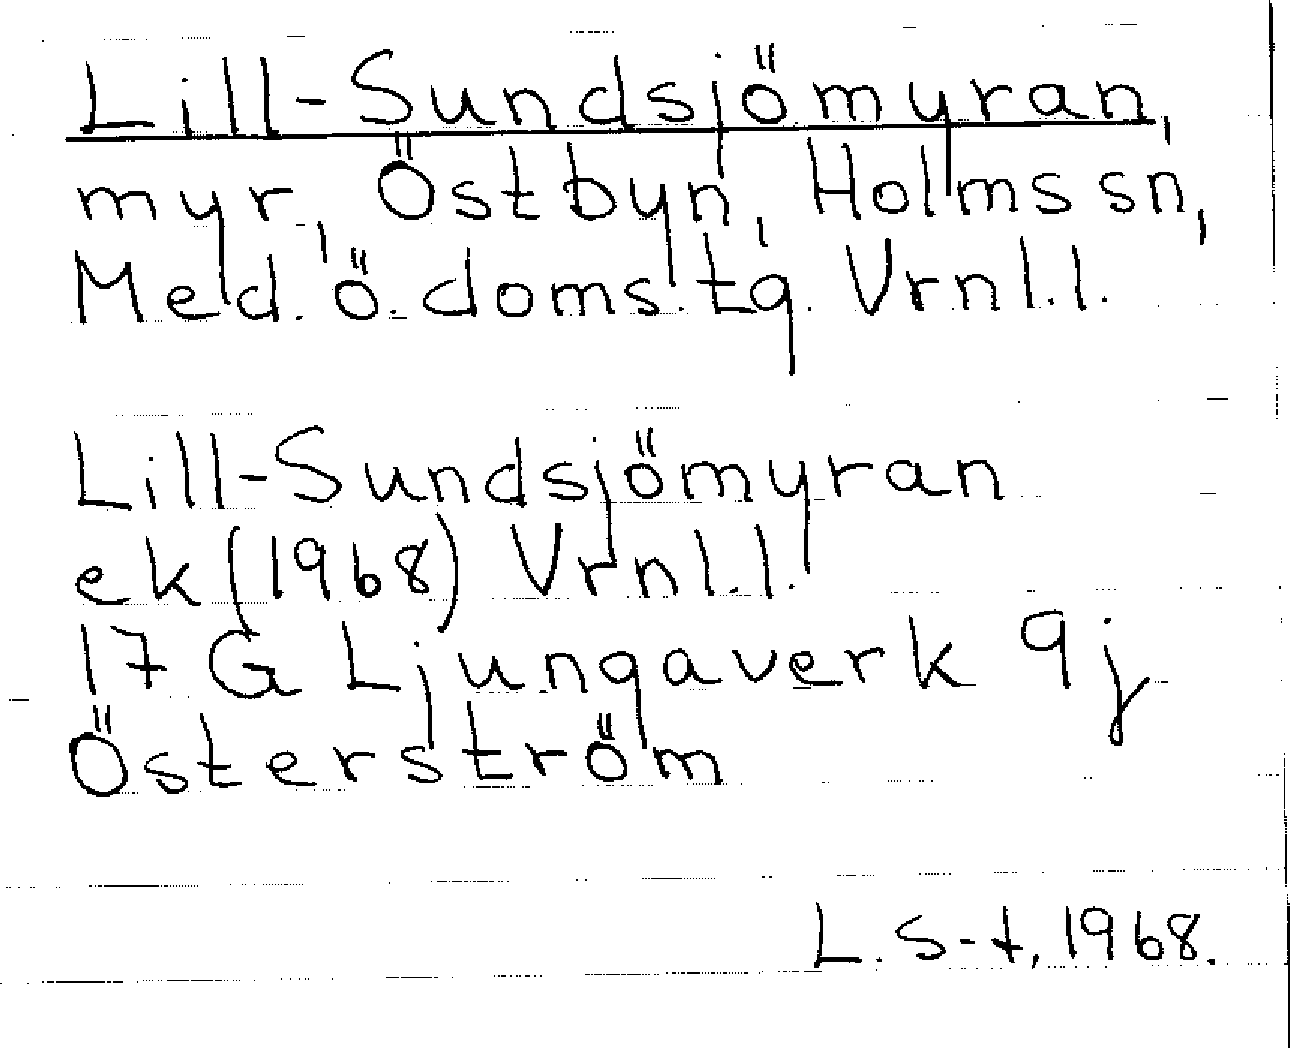 Lill-Sundsjömyran,
myr, Östbyn, Holms sn,
Med. ö. doms. tg. Vrnl.l.
Lill-Sundsjömyran
ek (1968) Vrnl.l.
17 G Ljungaverk 9j
Österström
L. S-t, 1968.